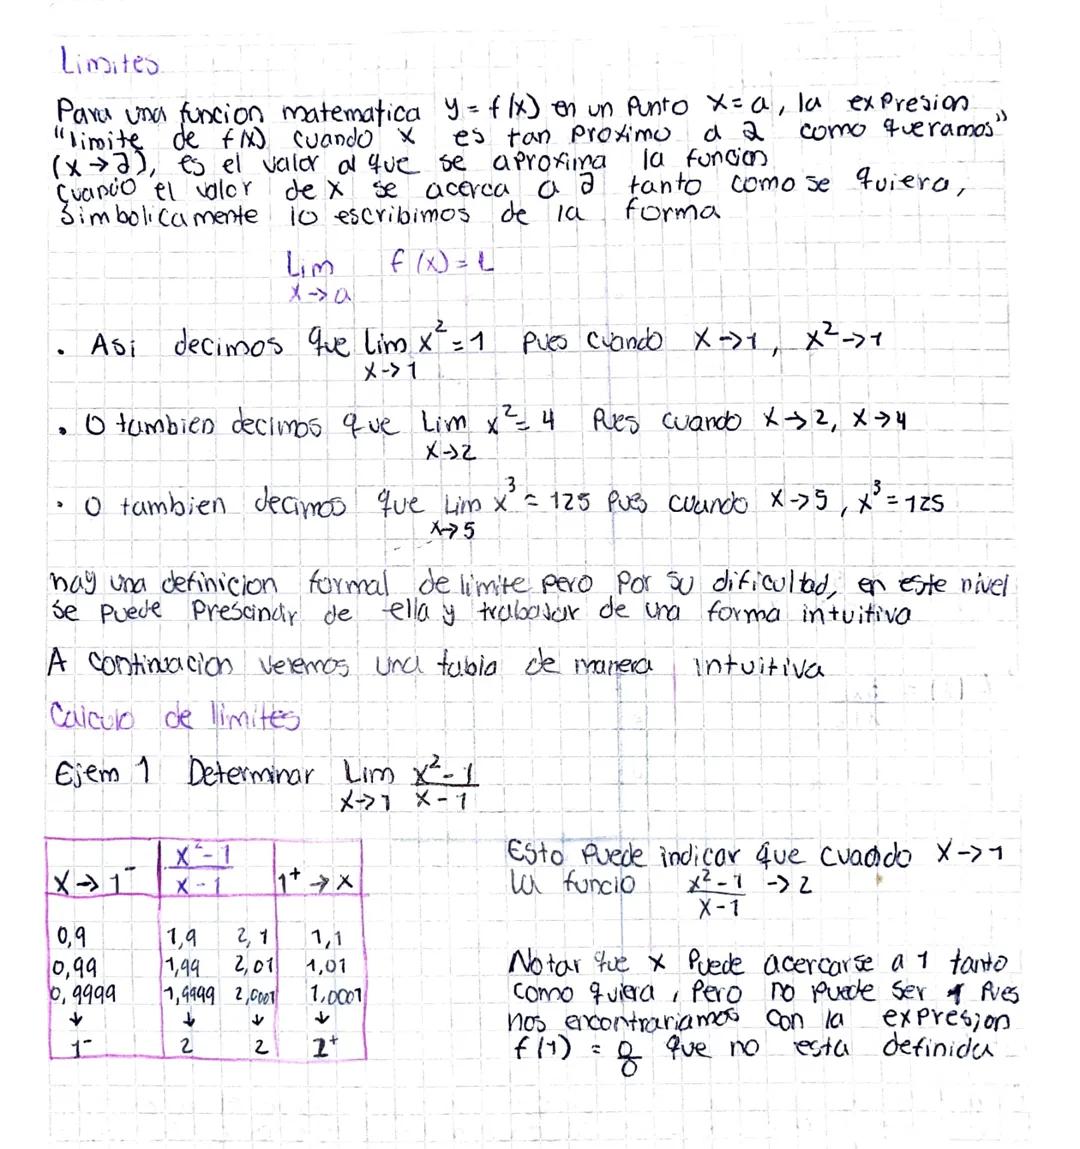 Limites
Para una funcion matematica y = f(x) en un punto x = a, la expresion
"limite de f(x) cuando x es tan proximo a a como queramos"
(x → a), es el valor al que se aproxima la funcion
cuando el valor de x se acerca a a tanto como se quiera,
simbolicamente lo escribimos de la forma
Lim f(x) = L
x → a
• Asi decimos que lim x² = 1 pues cuando x → 1, x² → 1
x → 1
• O tambien decimos que Lim x² = 4 pues cuando x → 2, x → 4
x → 2
• O tambien decimos que Lim x³ = 125 pues cuando x → 5, x³ = 125
x → 5
hay una definicion formal de limite pero por su dificultad, en este nivel
se puede prescindir de ella y trabajar de una forma intuitiva
A continuacion veremos una tabla de manera intuitiva
Calculo de limites
Ejem 1 Determinar Lim x² - 1
x → 1 x - 1
x → 1⁻ x² - 1 1⁺ → x
x - 1
0,9 1,9 2,1 1,1
0,99 1,99 2,01 1,01
0,9999 1,9999 2,0001 1,0001
↓ ↓ ↓ ↓
1⁻ 2 2 1⁺
Esto puede indicar que cuando x → 1
la funcio x² - 1 → 2
x - 1
Notar que x puede acercarse a 1 tanto
como quiera, pero no puede ser 1 pues
nos encontrariamos con la expresion
f(1) = 0/0 que no esta definida